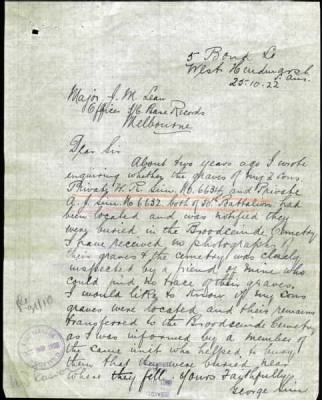 5 Bond St
West Hindmarsh
25.10.22
Major J. M. Lean
Officer i/c Base Records
Melbourne
Dear Sir
About two years ago I wrote
enquiring whether the graves of my 2 sons
Private W. R. Sinn, No. 6634, and Private
A. J. Sinn No 6632 both of 50th Battalion had
been located and was notified they
were buried in the Broodseinde Cemetery
I have received no photographs of
their graves & the cemetery was closely
inspected by a friend of mine who
could find no trace of their graves.
I would like to know if my sons
graves were located and their remains
transferred to the Broodseinde Cemetery
as I was informed by a member of
the same unit who helped to bury
them that they were buried near
where they fell. Yours faithfully
George Sinn